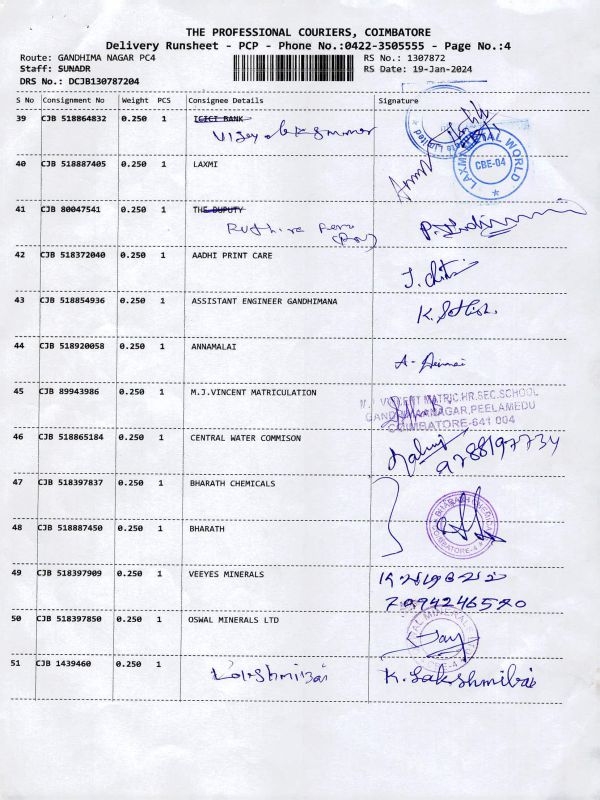 THE PROFESSIONAL COURIERS, COIMBATORE
Delivery Runsheet - PCP - Phone No.:0422-3505555 - Page No.:4
Route: GANDHIMA NAGAR PC4 RS No.: 1307872
Staff: SUNADR RS Date: 19-Jan-2024
DRS No.: DCJB130787204
S No Consignment No Weight PCS Consignee Details Signature
39 CJB 518864832 0.250 1 ICICI BANK
40 CJB 518887405 0.250 1 LAXMI
LAXMI WORLD
CBE-04
41 CJB 80047541 0.250 1 THE DUPUTY
42 CJB 518372040 0.250 1 AADHI PRINT CARE
43 CJB 518854936 0.250 1 ASSISTANT ENGINEER GANDHIMANA
K. Sathish
44 CJB 518920058 0.250 1 ANNAMALAI
45 CJB 89943986 0.250 1 M.J.VINCENT MATRICULATION
VINCENT MATRIC.HR.SEC.SCHOOL
NAGAR, PEELAMEDU
COIMBATORE-641 004
46 CJB 518865184 0.250 1 CENTRAL WATER COMMISON
9788197734
47 CJB 518397837 0.250 1 BHARATH CHEMICALS
BHARATH CHEMICALS
COIMBATORE-4
48 CJB 518887450 0.250 1 BHARATH
49 CJB 518397909 0.250 1 VEEYES MINERALS
7094246520
50 CJB 518397850 0.250 1 OSWAL MINERALS LTD
CBE-4
51 CJB 1439460 0.250 1 Lakshmibai K. Lakshmibai